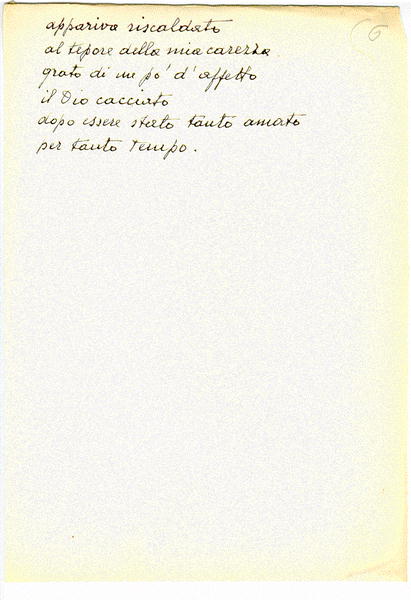 6
appariva riscaldato
al tepore della mia carezza
grato di un pó d'affetto
il Dio cacciato
dopo essere stato tanto amato
per tanto tempo.